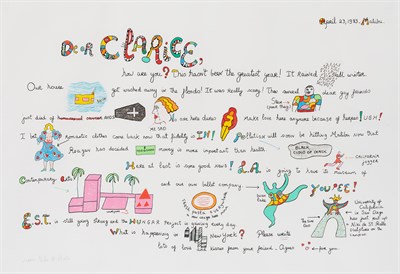 April 23, 1983. Malibu
Dear CLARICE,
how are you? This hasn't been the greatest year! It rained all winter
Our house got washed away in the floods! It was really crazy! Then several dear gay friends
just died of homosexual cancer
ME SAD
No one here dares MAKE love here anymore because of herpes! UGH!
I bet Romantic clothes come back now that fidelity is IN!
Pollution will soon be hitting Malibu now that
Reagan has decided money is more important than health
BLACK CLOUD OF DEATH
CALIFORNIA
Here at last is some good news! L.A. is going to have its museum of
Contemporary Art and our own ballet company YOUPEE!
E.S.T. is still going strong and the HUNGER Project is growing every day
What is happening in New York? Please write
lots of love kisses from your friend
for you
University of California in San Diego has just put up Niki de St. Phalle Sculpture on the Campus